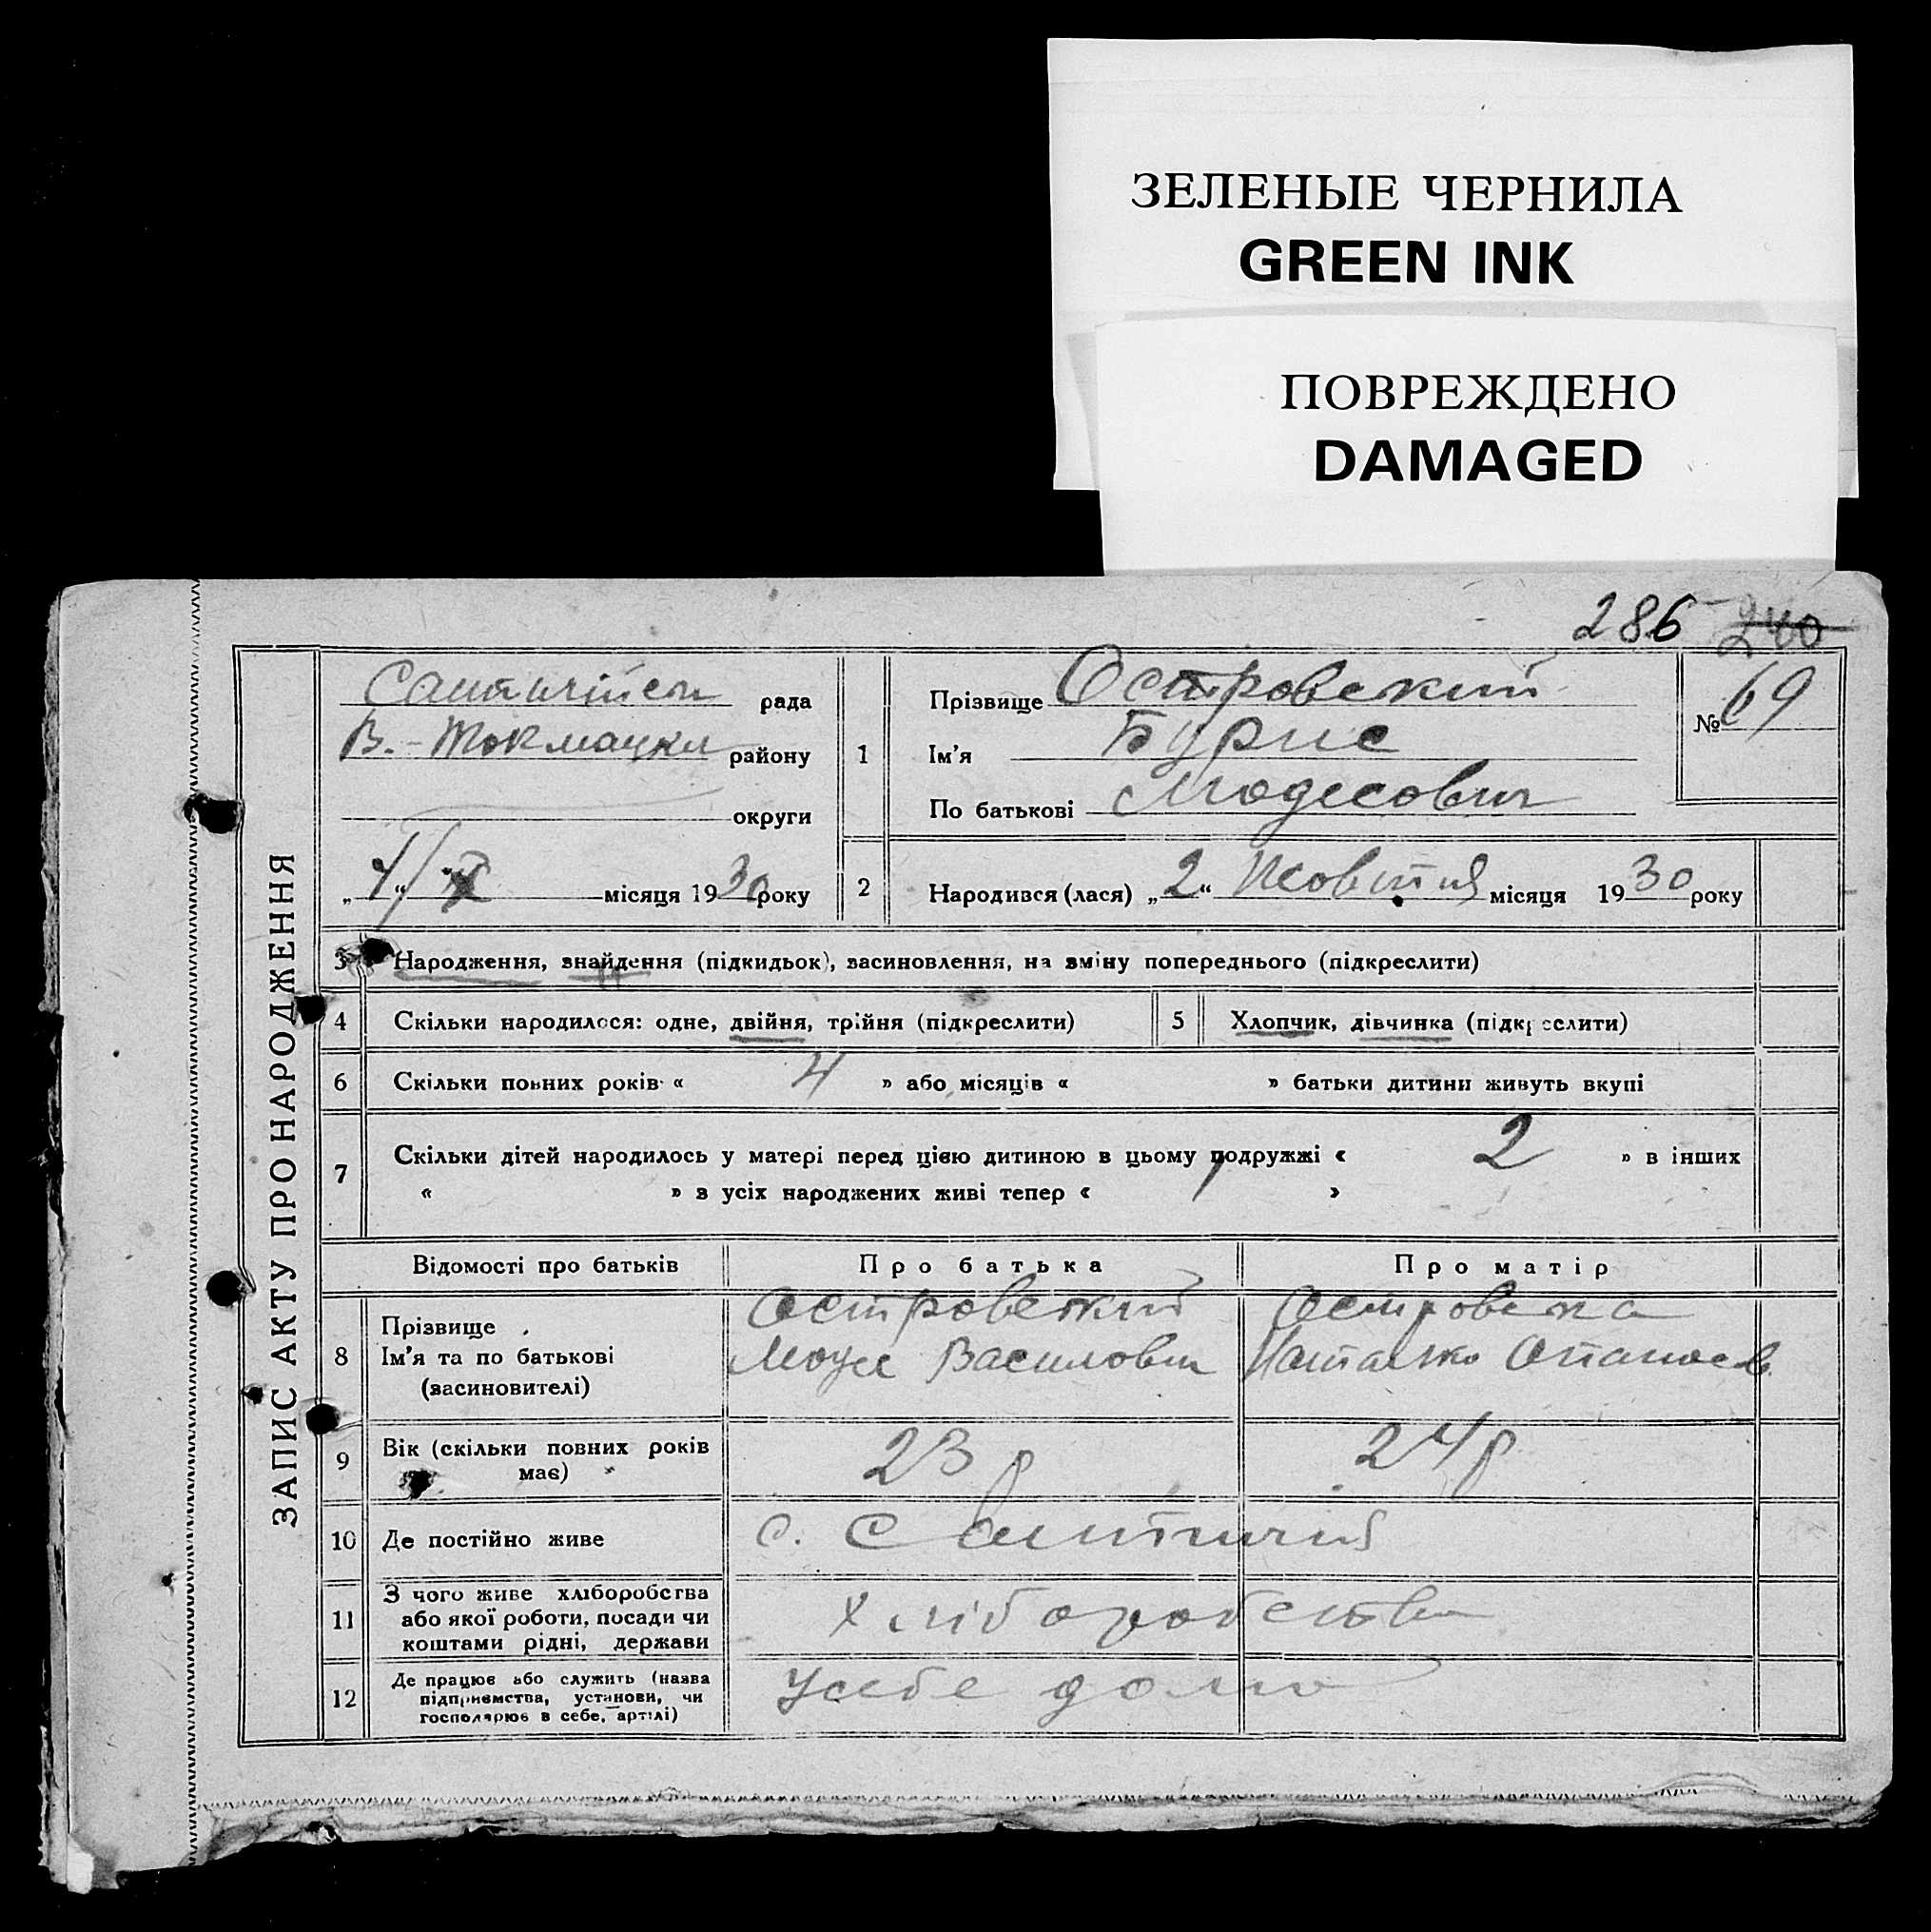 ЗЕЛЕНЫЕ ЧЕРНИЛА
GREEN INK
ПОВРЕЖДЕНО
DAMAGED
286 240
ЗАПИС АКТУ ПРО НАРОДЖЕННЯ
рада
В.-Токмацки району
округи
„ 4 “ X місяця 1930 року
1
Прізвище Островский
Ім'я Бурис
По батькові Модесович
№ 69
2 Народився (лася) „ 2 “ Жовтня місяця 1930 року
3 Народження, знайдення (підкидьок), засиновлення, на зміну попереднього (підкреслити)
4 Скільки народилося: одне, двійня, трійня (підкреслити)
5 Хлопчик, дівчинка (підкреслити)
6 Скільки повних років « 4 » або місяців « » батьки дитини живуть вкупі
7 Скільки дітей народилось у матері перед цією дитиною в цьому подружжі « 2 » в інших
« » з усіх народжених живі тепер « 1 »
Відомості про батьків Про батька Про матір
8 Прізвище
Ім'я та по батькові
(засиновителі)
Островский
Василович
Островска
9 Вік (скільки повних років
має)
23 р
24 р
10 Де постійно живе
с.
11 З чого живе хліборобства
або якої роботи, посади чи
коштами рідні, держави
Хліборобства
12 Де працює або служить (назва
підприємства, установи, чи
господарює в себе, артілі)
Усебе дома